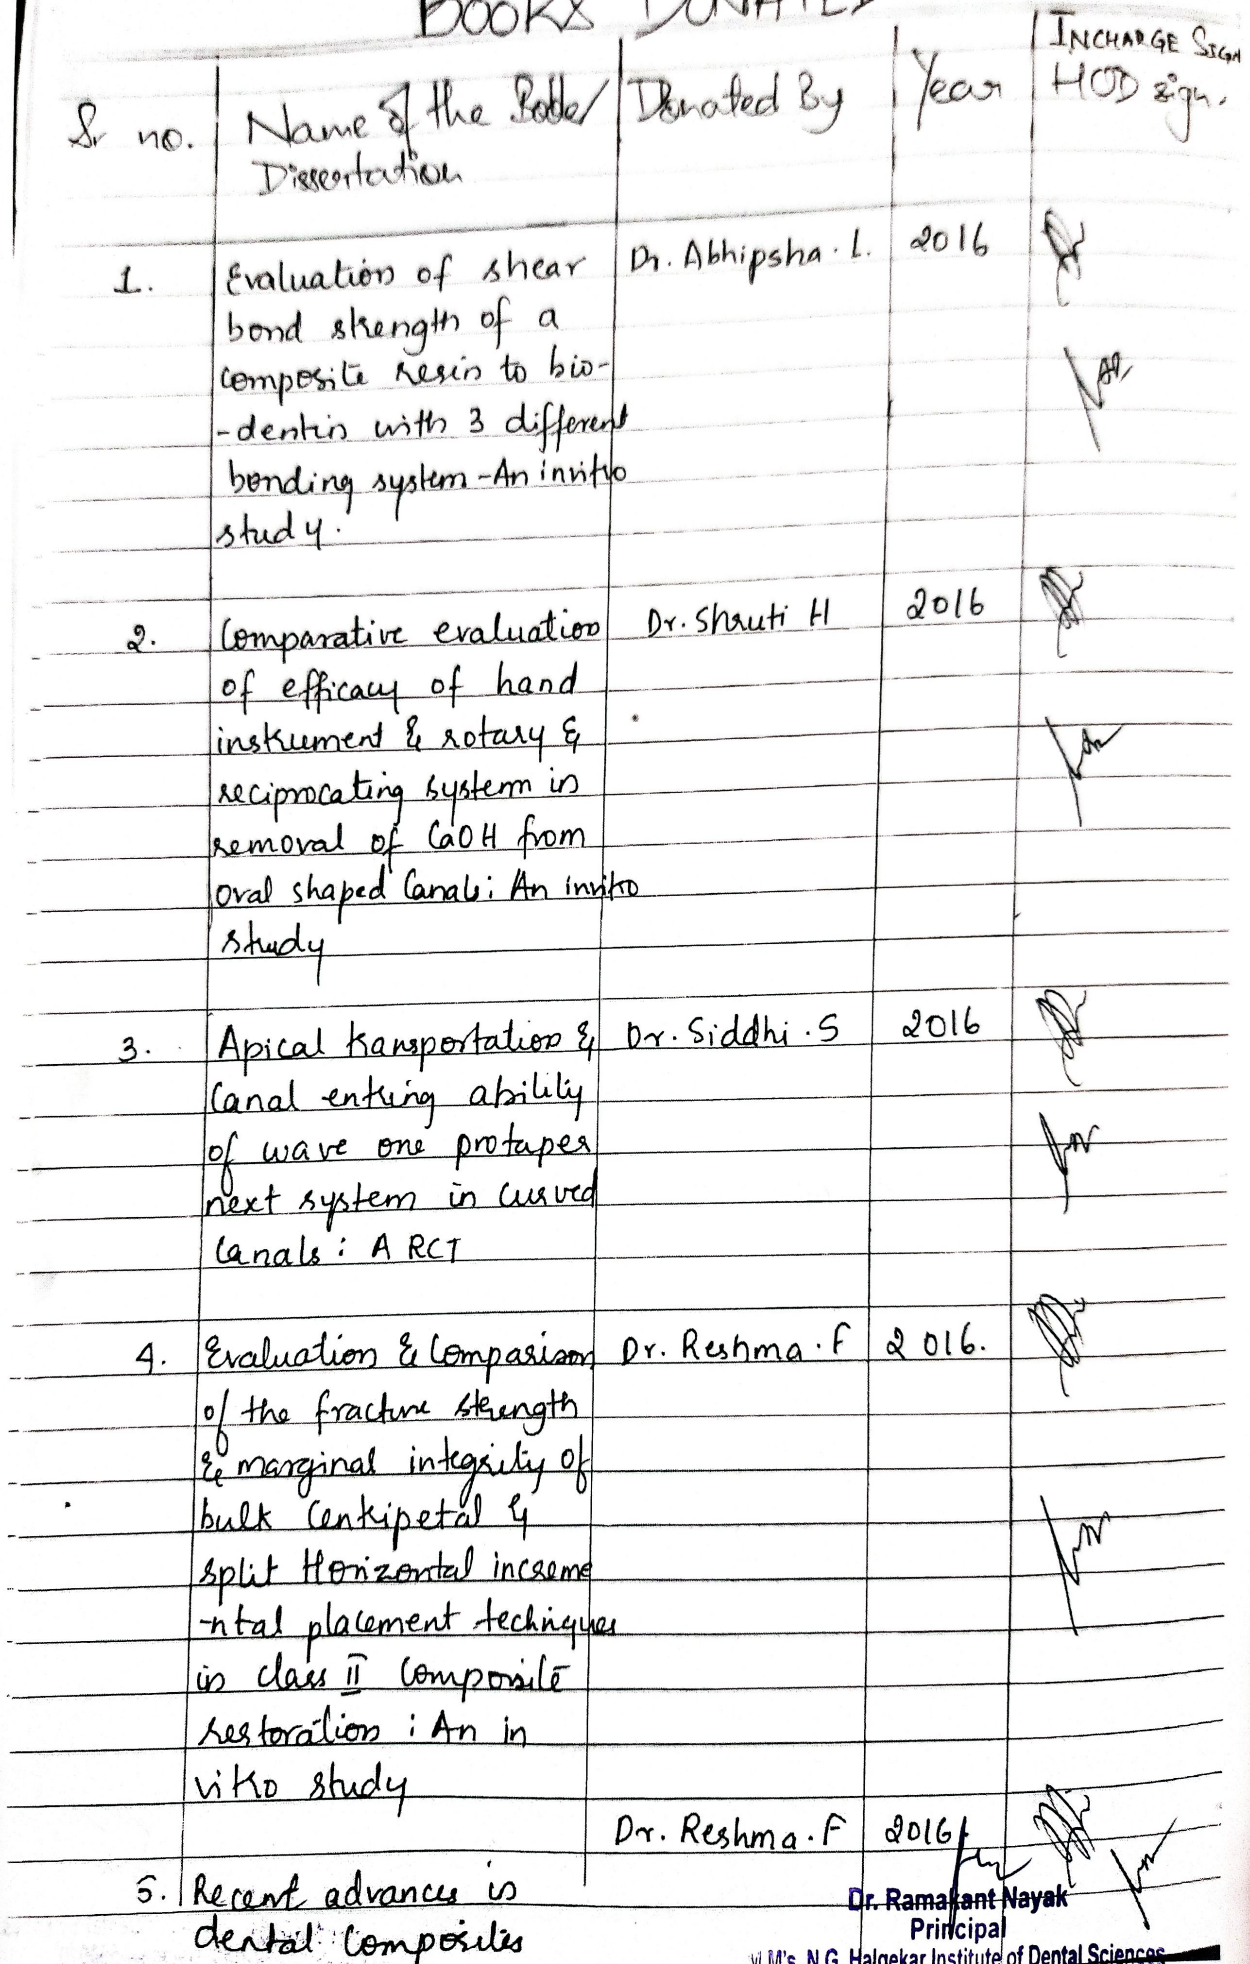 BOOKS DONATED
Sr no. Name of the Book/ Dissertation Donated By Year INCHARGE SIGN HOD sign.
1. Evaluation of shear Dr. Abhipsha . L. 2016
bond strength of a
composite resin to bio-
-dentin with 3 different
bonding system - An invitro
study.
2. Comparative evaluation Dr. Shruti H 2016
of efficacy of hand
instrument & rotary &
reciprocating system in
removal of CaOH from
oval shaped Canals: An invitro
study
3. Apical transportation & Dr. Siddhi . S 2016
Canal entring ability
of wave one protaper
next system in curved
Canals : A RCT
4. Evaluation & Comparison Dr. Reshma . F 2016.
of the fracture strength
& marginal integrity of
bulk Centripetal &
split Horizontal increme
-ntal placement technques
in class II Composite
restoration : An in
vitro study
Dr. Reshma . F 2016
5. Recent advances in
dental Composites
Dr. Ramakant Nayak
Principal
M's. N.G. Halgekar Institute of Dental Sciences